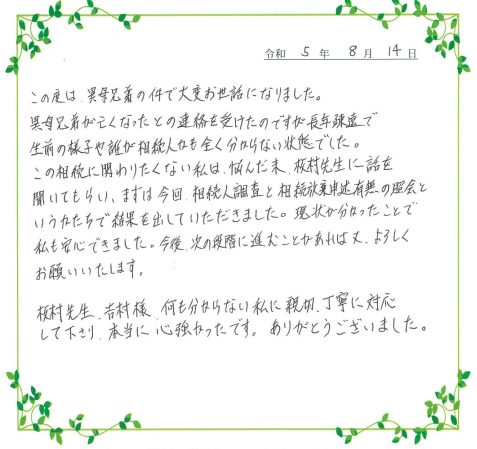 令和 5 年 8 月 14 日
この度は、異母兄弟の件で大変お世話になりました。
異母兄弟が亡くなったとの連絡を受けたのですが長年疎遠で
生前の様子や誰が相続人かも全く分からない状態でした。
この相続に関わりたくない私は、悩んだ末、板村先生に話を
聞いてもらい、まずは今回、相続人調査と相続放棄申述有無の照会と
いうかたちで結果を出していただきました。現状が分かったことで
私も安心できました。今後、次の段階に進むことがあれば又、よろしく
お願いいたします。
板村先生、吉村様、何も分からない私に親切、丁寧に対応
して下さり、本当に心強かったです。ありがとうございました。